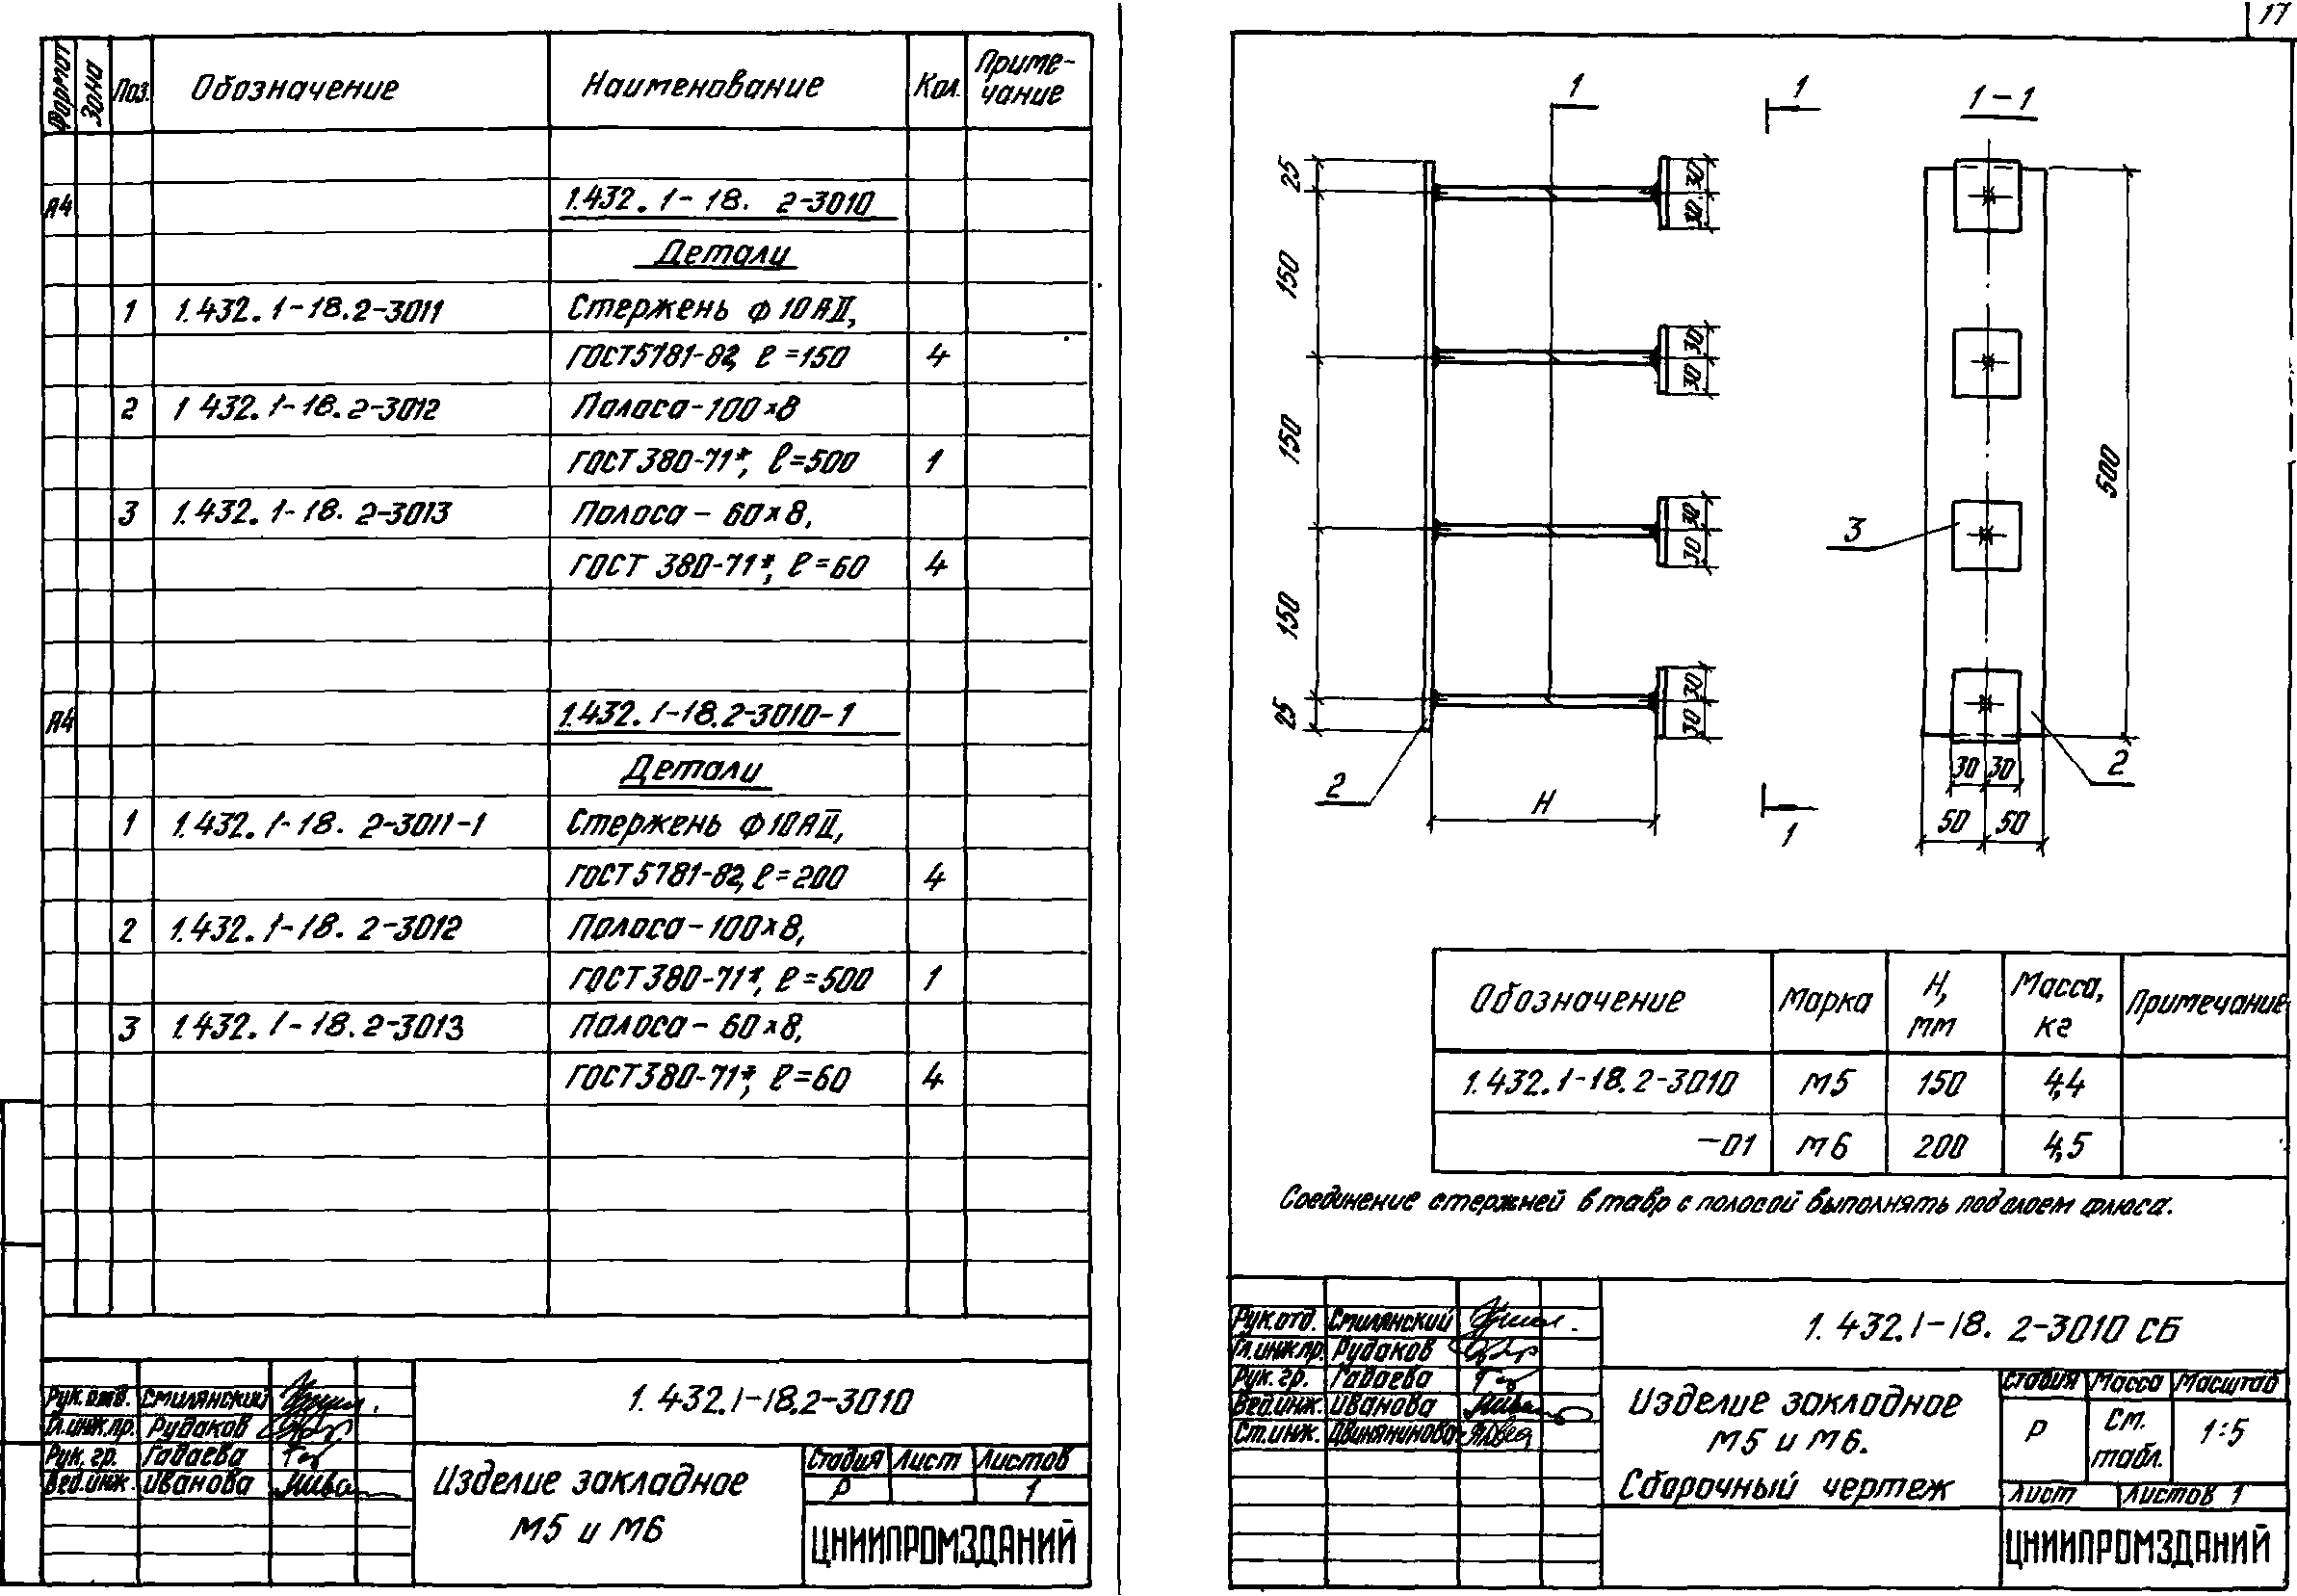 17
Формат Зона Поз. Обозначение Наименование Кол. Приме-
чание
А4 1.432.1-18. 2-3010
Детали
1 1.432.1-18.2-3011 Стержень Ф10АII,
ГОСТ5781-82, ℓ=150 4
2 1 432.1-18.2-3012 Полоса-100×8
ГОСТ380-71*, ℓ=500 1
3 1.432.1-18. 2-3013 Полоса-60×8,
ГОСТ 380-71*, ℓ=60 4
А4 1.432.1-18.2-3010-1
Детали
1 1.432.1-18. 2-3011-1 Стержень Ф10АII,
ГОСТ5781-82, ℓ=200 4
2 1.432.1-18. 2-3012 Полоса-100×8,
ГОСТ380-71*, ℓ=500 1
3 1.432.1-18.2-3013 Полоса-60×8,
ГОСТ380-71*, ℓ=60 4
Рук.отд. Смилянский
Гл.инж.пр. Рудаков
Рук. гр. Гадаева
Вед.инж. Иванова
1.432.1-18.2-3010
Изделие закладное
М5 и М6
Стадия Лист Листов
Р 1
ЦНИИПРОМЗДАНИЙ
1 1 1-1
25 30 30
150
30 30
150
30 30
150
30 30
25
500
3
2
H
1
30 30
2
50 50
Обозначение Марка Н, мм Масса, кг Примечание
1.432.1-18.2-3010 М5 150 4,4
-01 М6 200 4,5
Соединение стержней в тавр с полосой выполнять под слоем флюса.
Рук.отд. Смилянский
Гл.инж.пр. Рудаков
Рук. гр. Гадаева
Вед.инж. Иванова
Ст.инж. Двинянинова
1.432.1-18. 2-3010 СБ
Изделие закладное
М5 и М6.
Сборочный чертеж
Стадия Масса Масштаб
Р См. табл. 1:5
Лист Листов 1
ЦНИИПРОМЗДАНИЙ